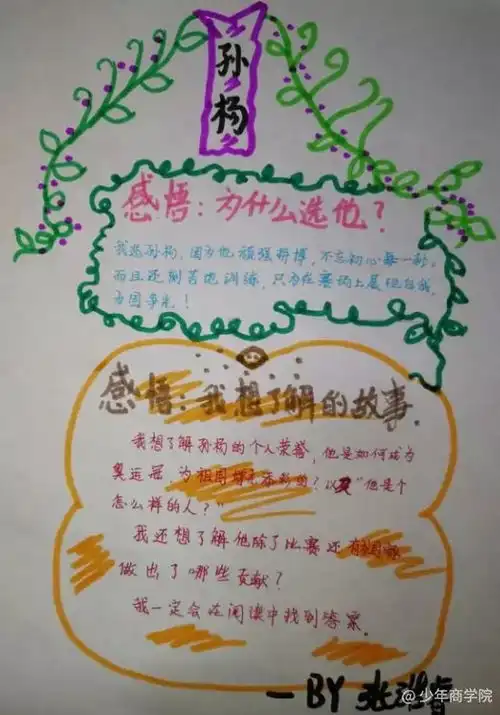 孙杨
感悟：为什么选他？
我选孙杨，因为他顽强拼搏，不忘初心每一秒。
而且还刻苦地训练，只为在赛场上展现自我，
为国争光！
感悟：我想了解的故事。
我想了解孙杨的个人荣誉，他是如何成为
奥运冠 为祖国增光添彩的？以及"他是个
怎么样的人？"
我还想了解他除了比赛还
做出了哪些贡献？
我一定会在阅读中找到答案。
—BY 张
@少年商学院